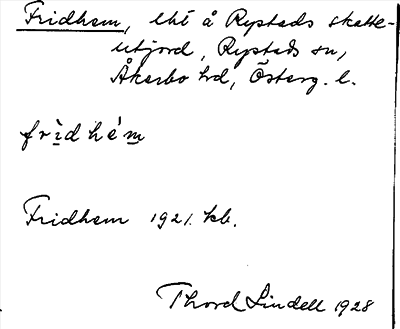 Fridhem, lht å Rystads skatte-
utjord, Rystads sn,
Åkerbo hd, Österg. l.
frìdhém
Fridhem 1921. kb.
Thord Lindell 1928